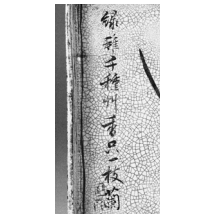 緑雜千種艸香只一枝蘭